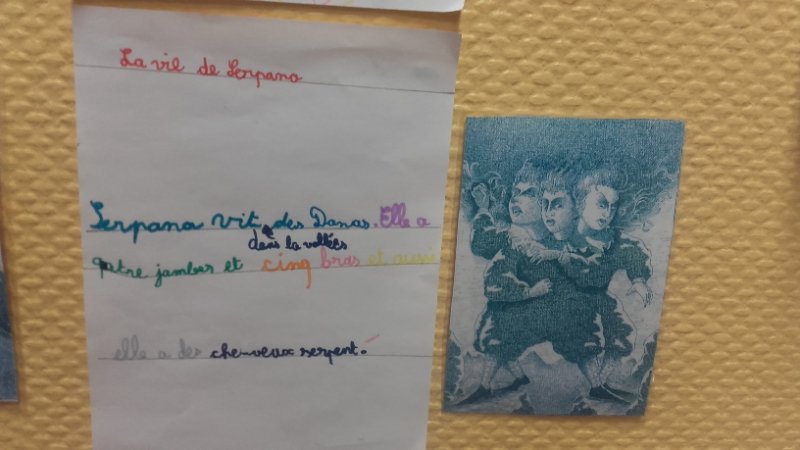 La vil de Serpana
Serpana vit des Danas. Elle a
dans la vallées
qatre jambes et cinq bras et aussi
elle a des cheuveux serpent.